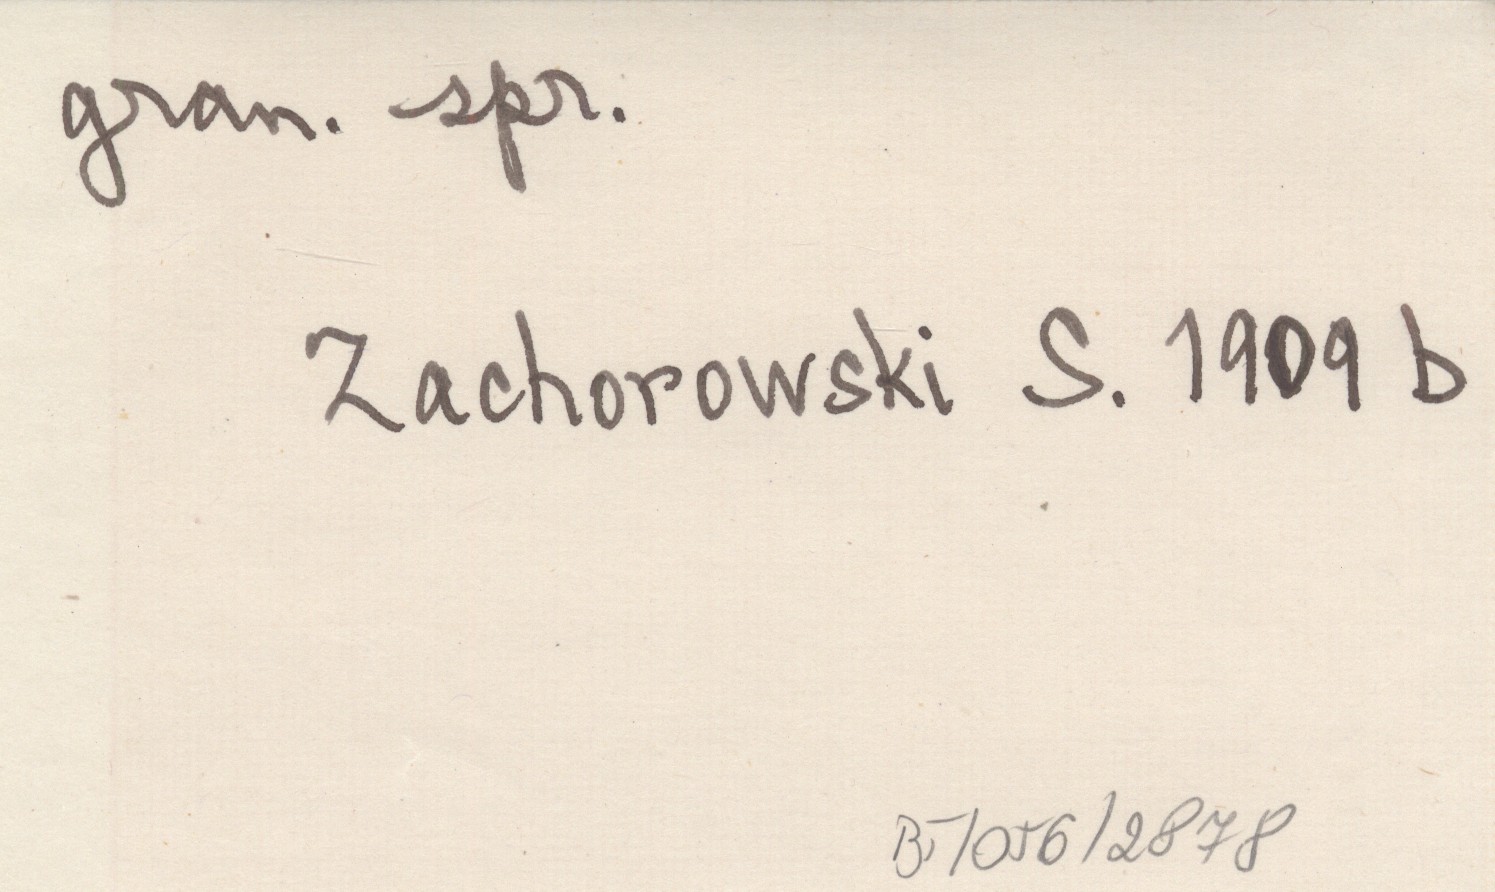 gran. spr.
Zachorowski S. 1909 b
B5/056/2878